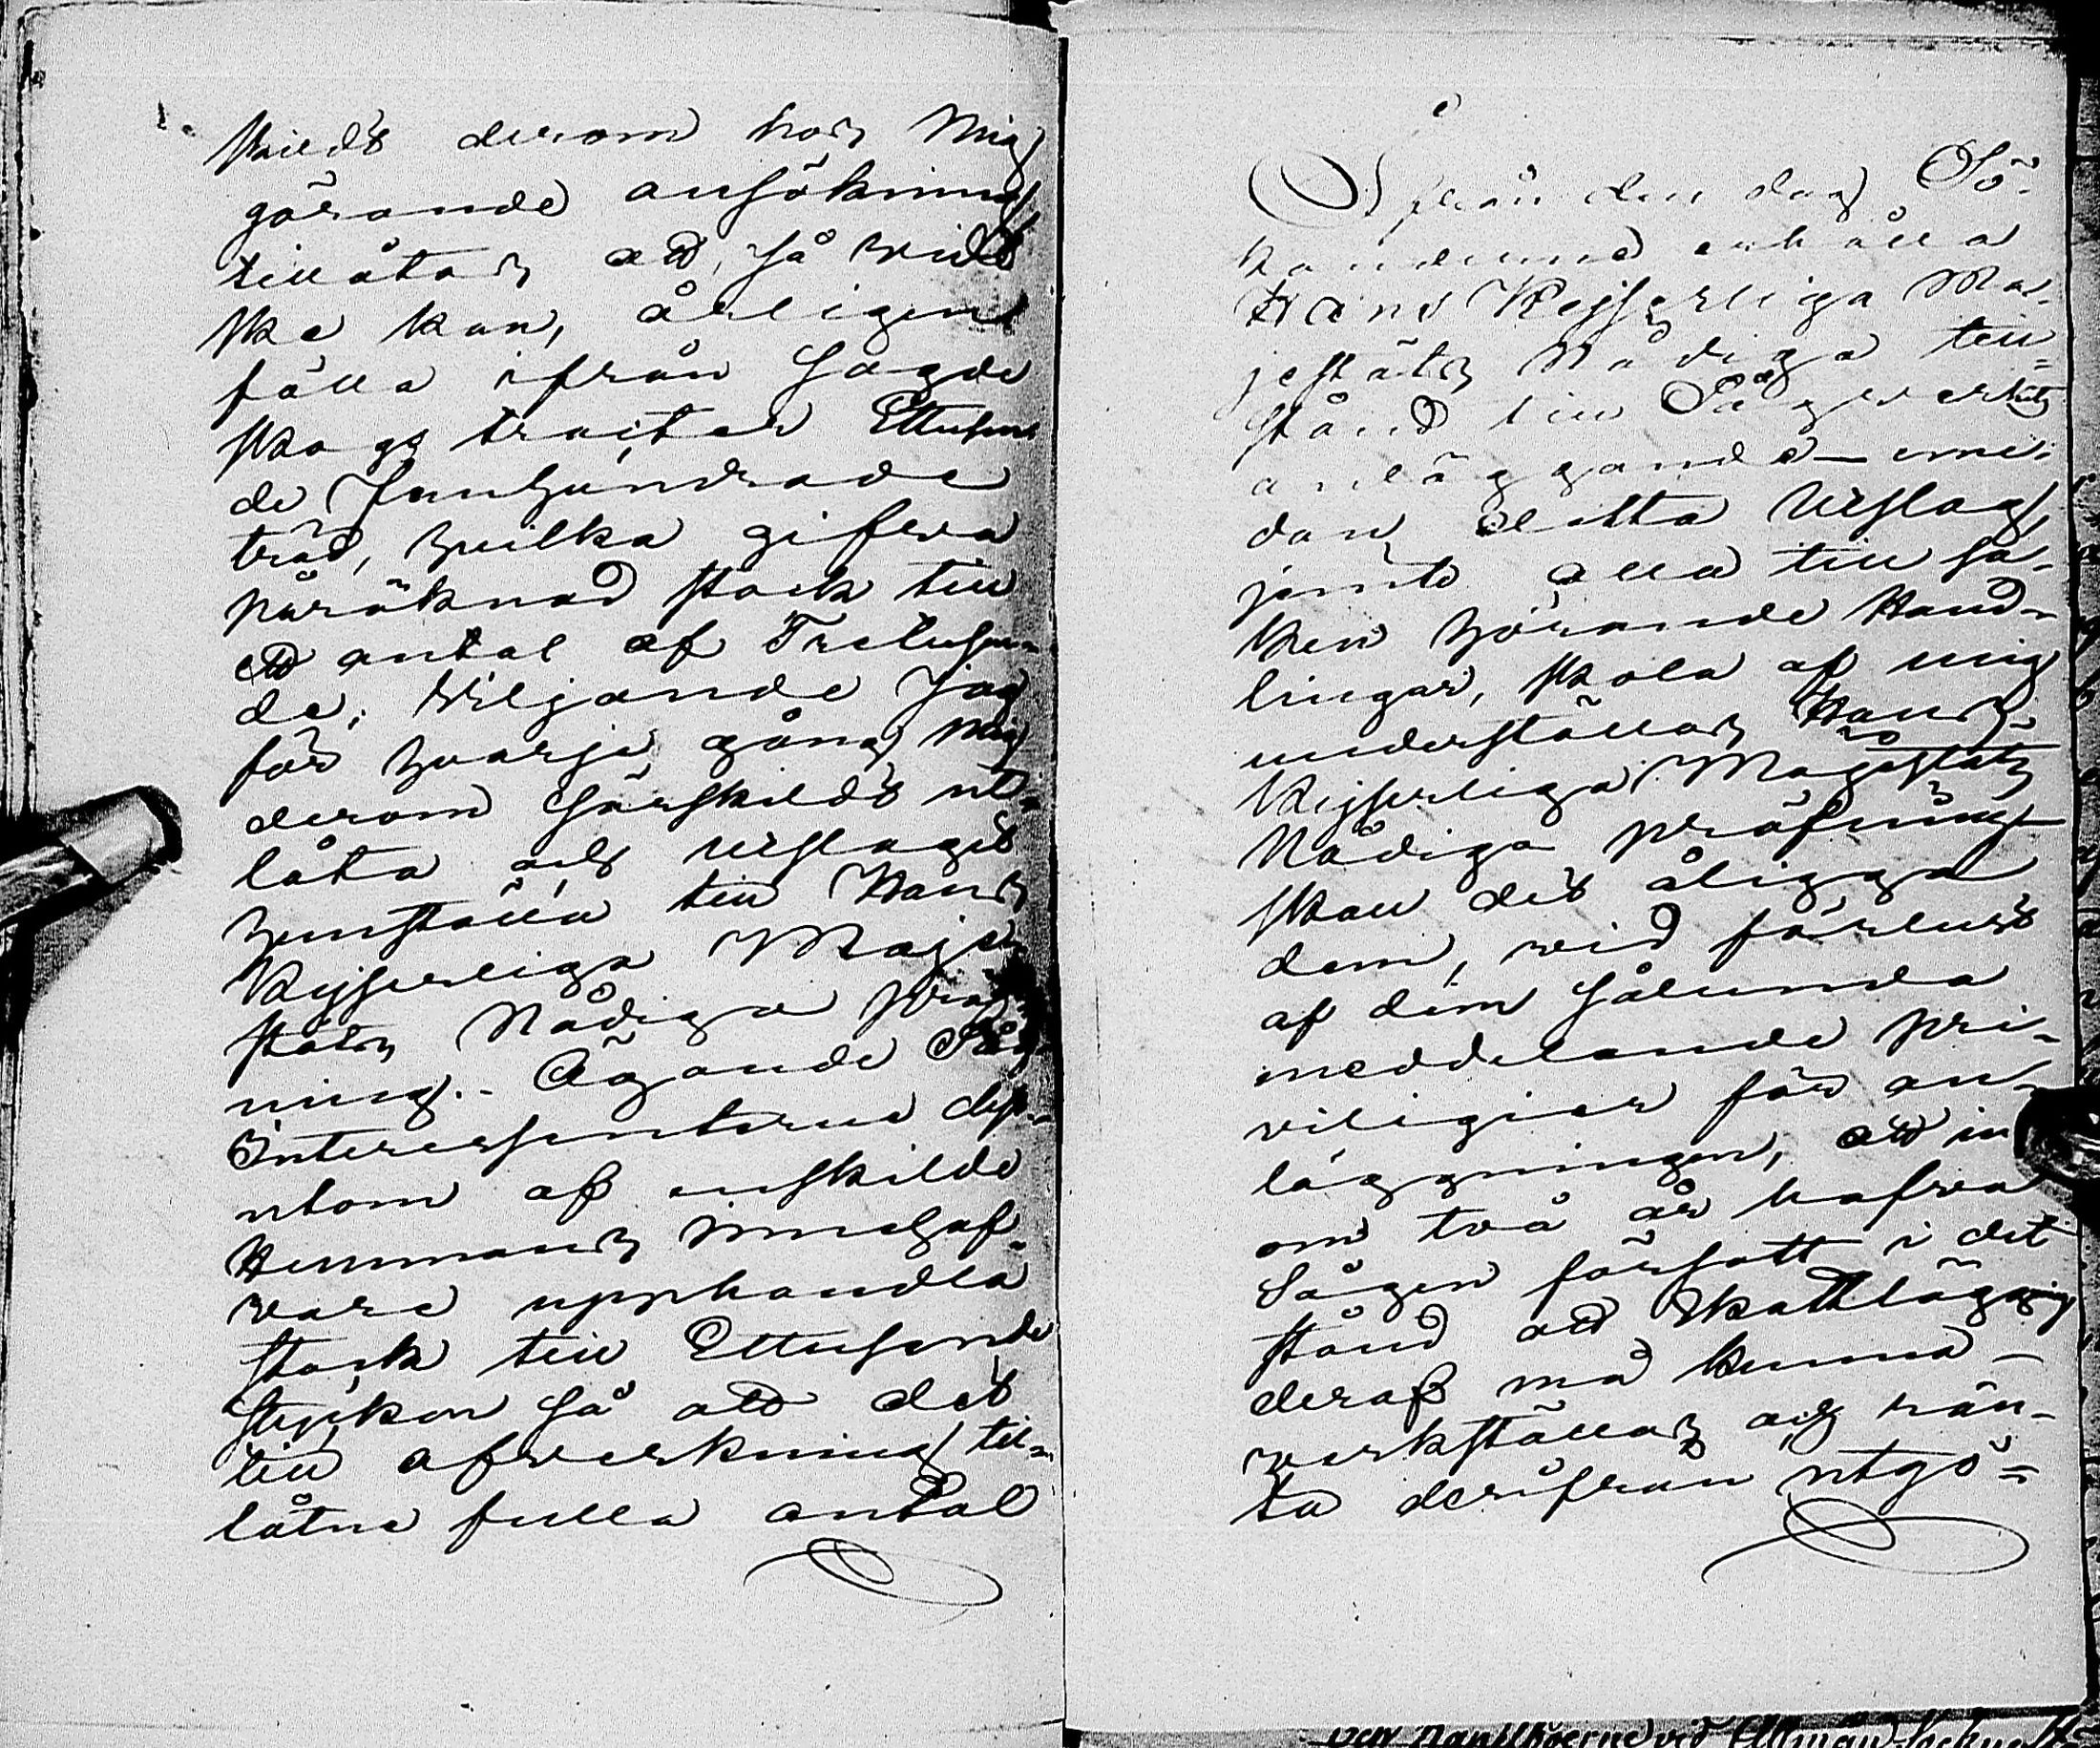 skildt derom hos mig
görande ansökning
tillåtas att, så vidt
ske kan, årligen
fälla ifrån sagde
skogs tracter Ettusen
de Femhundrade
träd, hvilka gifva
påräknad stock till
ett antal af Tretusen-
de, viljande jag
för hvarje gång mig
derom särskildt ut-
låta och utslaget
hemställa till Hans
Kejserliga Maje-
stäts Nådiga pröf-
ning. - Ägande Såg
Interessenterne dess-
utom af enskilde
Hemmans innehaf-
vare upphandla
stock till Ettusende
stycken så att det
till afverkning til-
låtne fulla antal
Ifrån den dag Sö-
kanderne erhålla
Hans Kejserliga Ma-
jestäts Nådiga till-
stånd till Sågverkets
anläggande - eme-
dan detta Utslag,
jemte alla till sa-
ken hörande Hand-
lingar, skola af mig
underställas Hans
Kejserliga Majestäts
Nådiga pröfning
skall det åligga
dem, vid förlust
af dem sålunda
meddelande pri-
vilegier för an-
läggningen, att in
om två år hafva
Sågen försatt i det
stånd att Skattläggning
deraf må kunna
verkställas och rän-
ta derifrån utgö-
vid Allmän Sockne